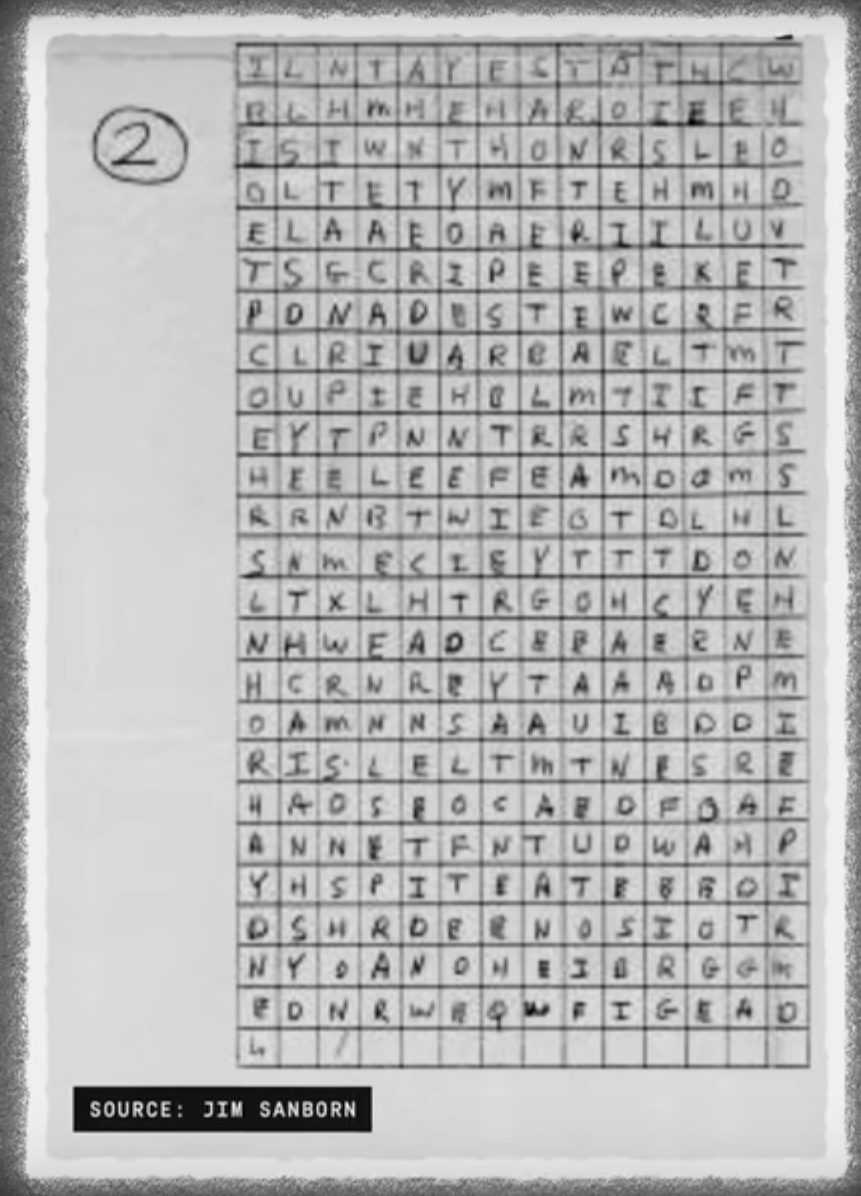 I L N T A Y E S T A T H C W
②
B L H M H E H A R O I E E H
I S I W N T H O N R S L E O
O L T E T Y M F T E H M H O
E L A A E O A E R I I L U V
T S G C R I P E E P E K E T
P D N A D E S T E W C R F R
C L R I U A R B A E L T M T
O U P I E H B L M T I I F T
E Y T P N N T R R S H R G S
H E E L E E F E A M D A M S
R R N B T W I E G T D L H L
S N M E C I E Y T T T D O N
L T X L H T R G O H C Y E H
N H W E A D C E E A E R N E
H C R N R E Y T A A A D P M
O A M N N S A A U I B D D I
R I S L E L T M T N E S R E
H A O S E O C A E D F O A F
A N N E T F N T U D W A H P
Y H S P I T E A T E E B O I
D S H R D E E N O S I O T R
N Y O A N O H E I B R G G M
E D N R W E Q W F I G E A O
SOURCE: JIM SANBORN